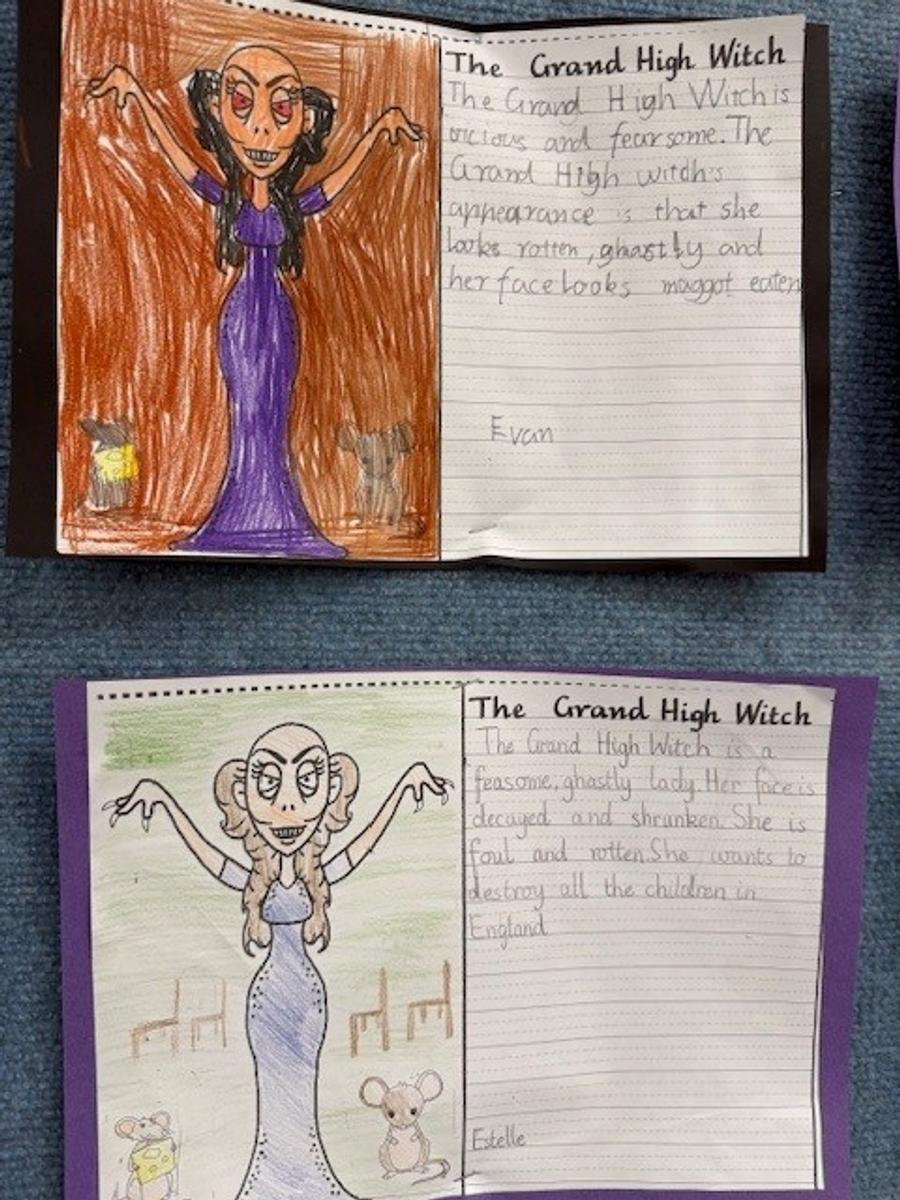 The Grand High Witch
The Grand High Witch is
vicious and fearsome. The
Grand High witch's
appearance is that she
looks rotten, ghastly and
her face looks maggot eaten
Evan
The Grand High Witch
The Grand High Witch is a
feasome, ghastly lady. Her face is
decayed and shrunken. She is
foul and rotten. She wants to
destroy all the children in
England
Estelle